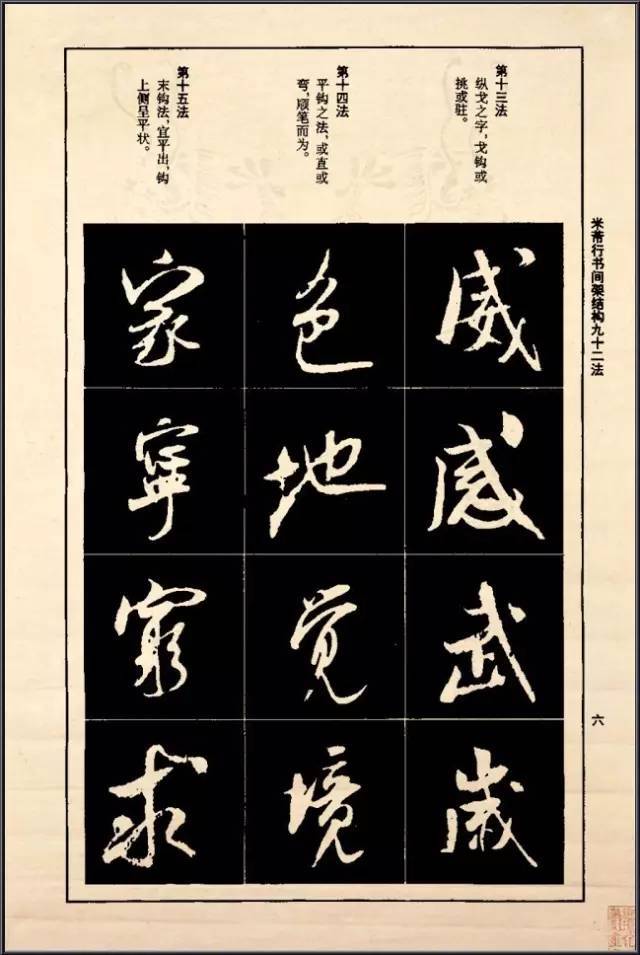 米芾行书间架结构九十二法
第十三法
纵戈之字，戈钩或
挑或驻。
威
感
武
岁
第十四法
平钩之法，或直或
弯，顺笔而为。
色
地
觉
境
第十五法
末钩法，宜平出，钩
上侧呈平状。
家
寧
窮
求
六